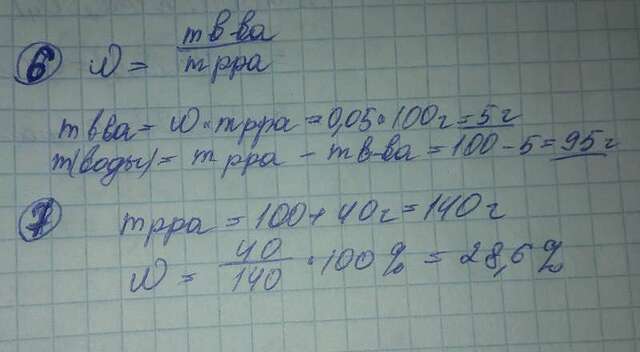 6 W = m в-ва / m р-ра
m в-ва = W · m р-ра = 0,05 · 100г = 5 г
m(воды) = m р-ра - m в-ва = 100 - 5 = 95 г
7 m р-ра = 100 + 40г = 140 г
W = 40 / 140 · 100 % = 28,6 %